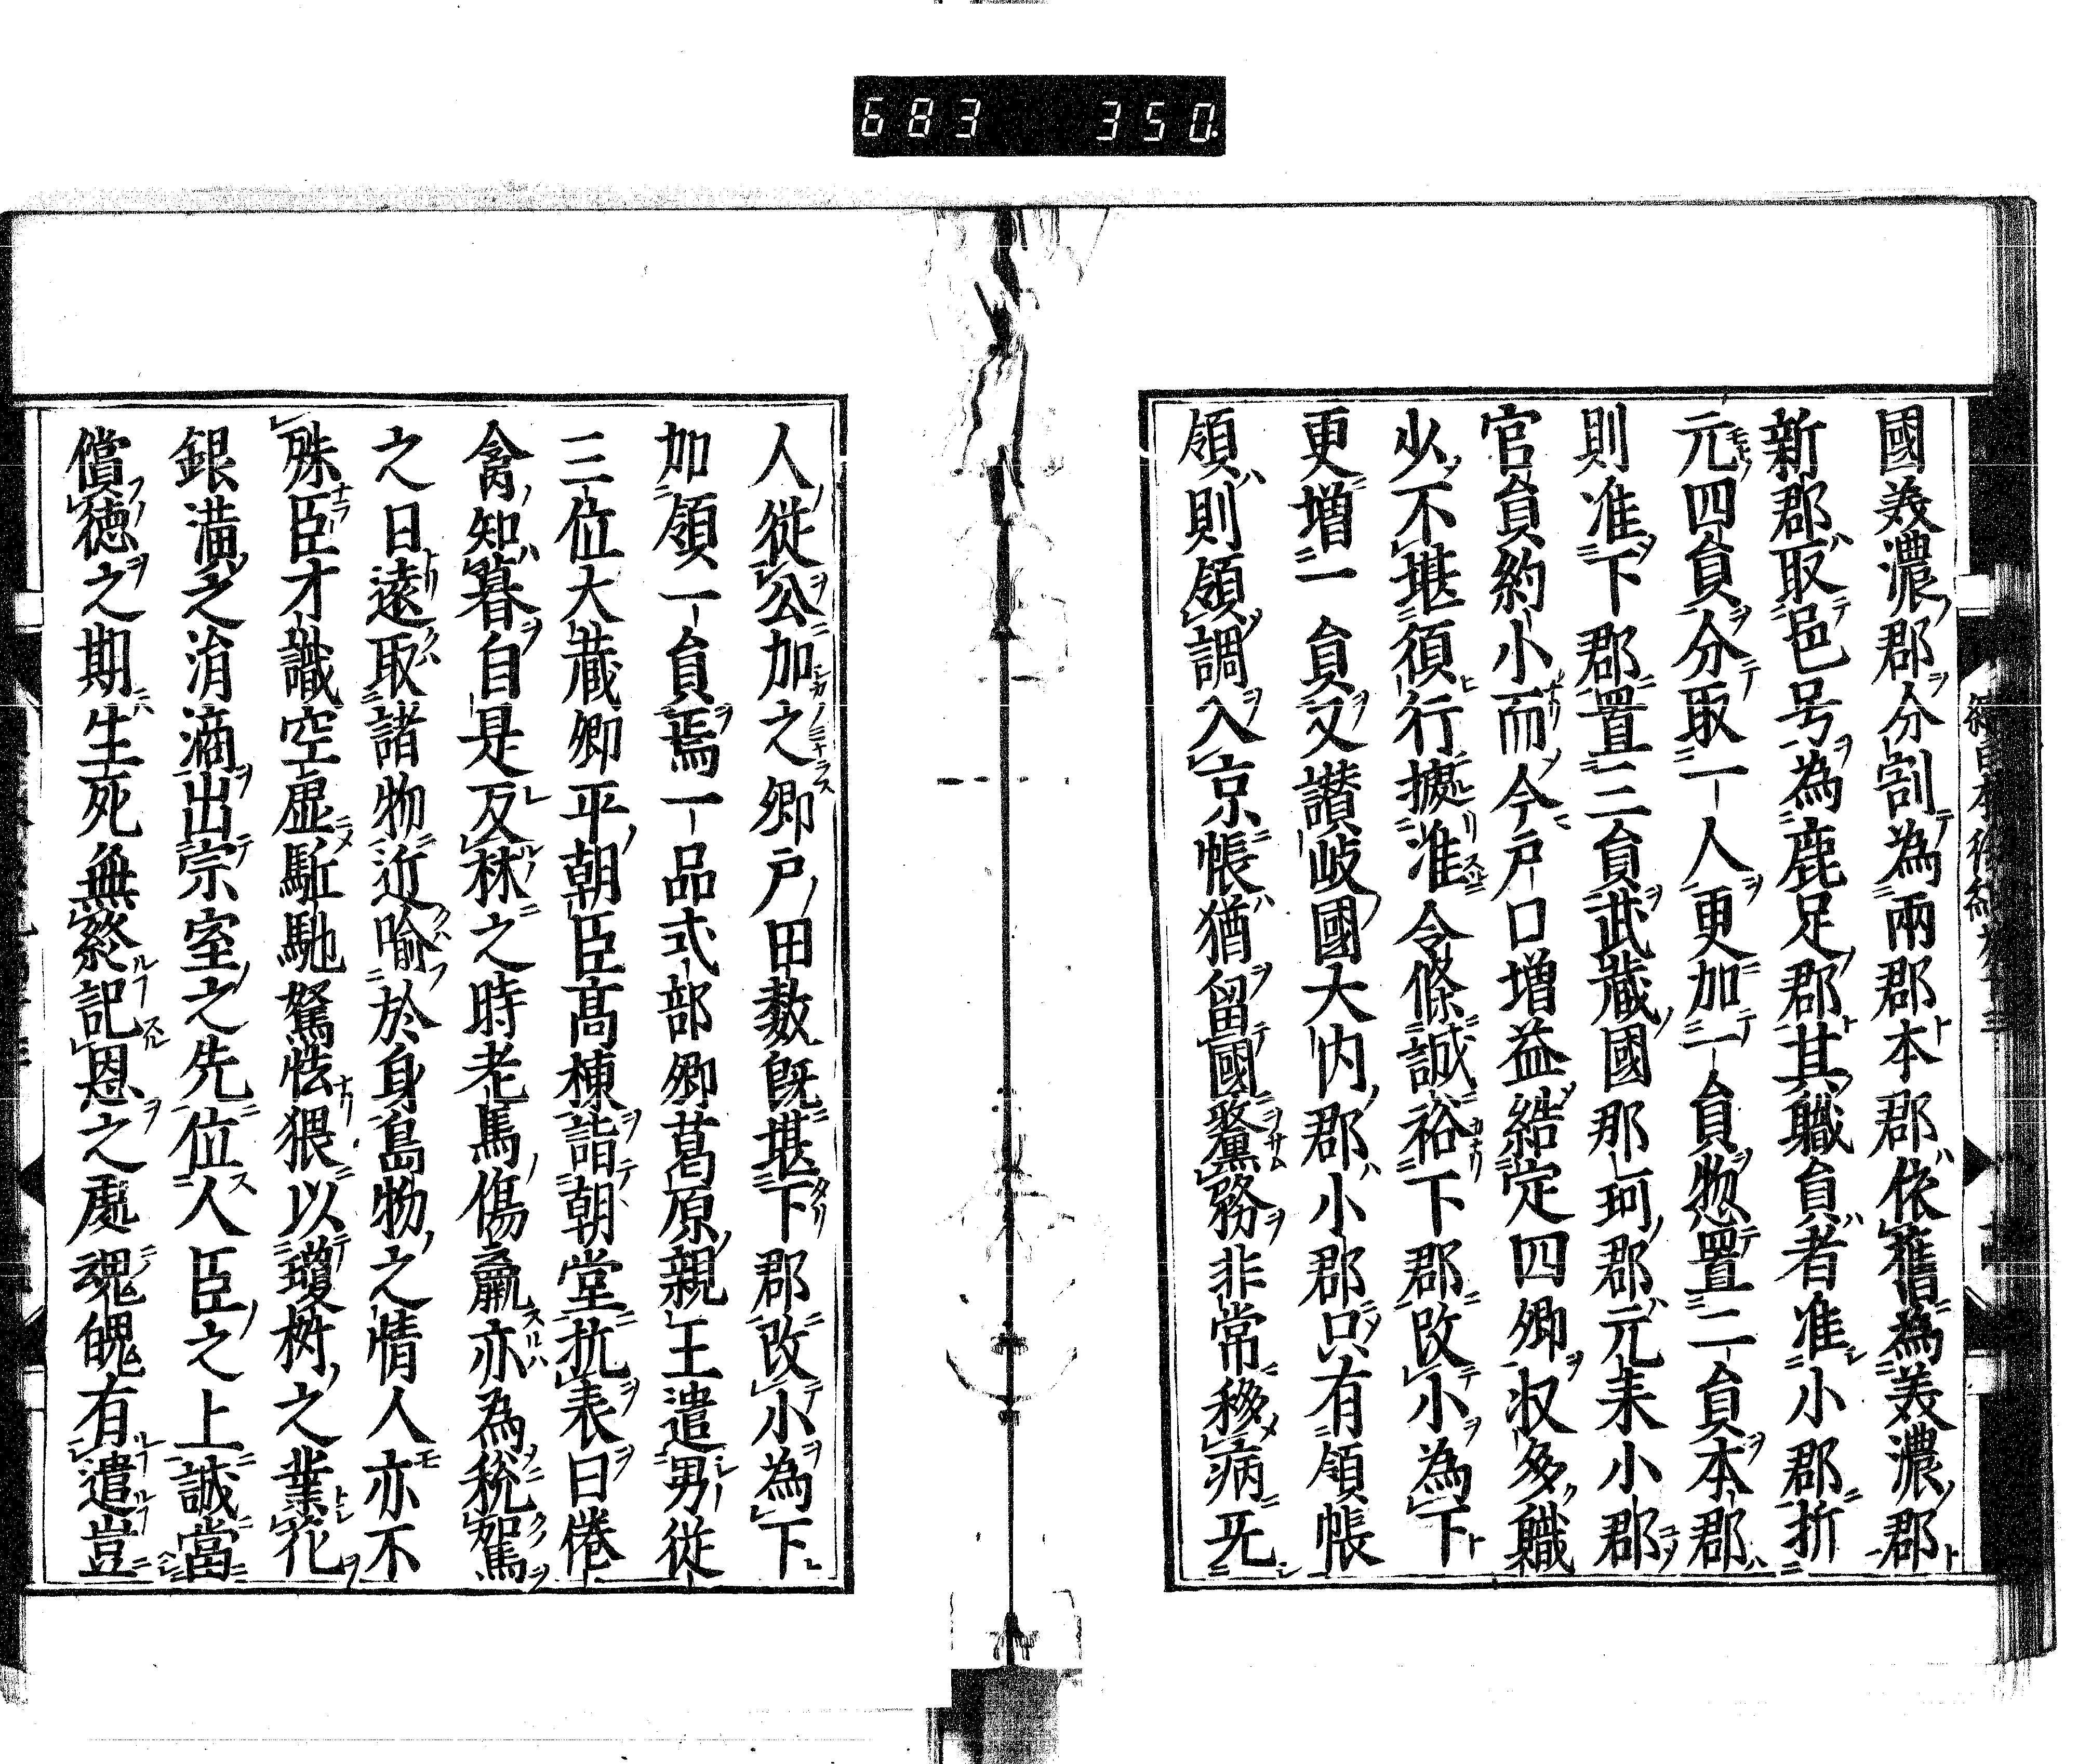 683 350
國羙濃郡分割為兩郡本郡依舊為羙濃郡
新郡取邑号為鹿足郡其職負者准小郡折
元四負分取一人更加一負惣置二負本郡
則准下郡置三負武藏國那珂郡元来小郡
官負約小而今戸口增益結定四郷収多職
少不堪須行據准令條誠裕下郡改小為下
更增一負又讃岐國大内郡小郡只有領帳
領則領調入京帳猶留國釐務非常移病旡
人従公加之郷戸田數既堪下郡改小為下
加領一負焉一品式部卿葛原親王遣男従
三位大藏卿平朝臣髙棟詣朝堂抗表曰倦
禽知暮自是反林之時老馬傷羸亦為税駕
之日遠取諸物近喩於身鳥物之情人亦不
殊臣才識空虚駈馳駑怯猥以瓊樹之業花
銀潢之涓滴出宗室之先位人臣之上誠當
償徳之期生死無終記恩之處魂魄有遣豈